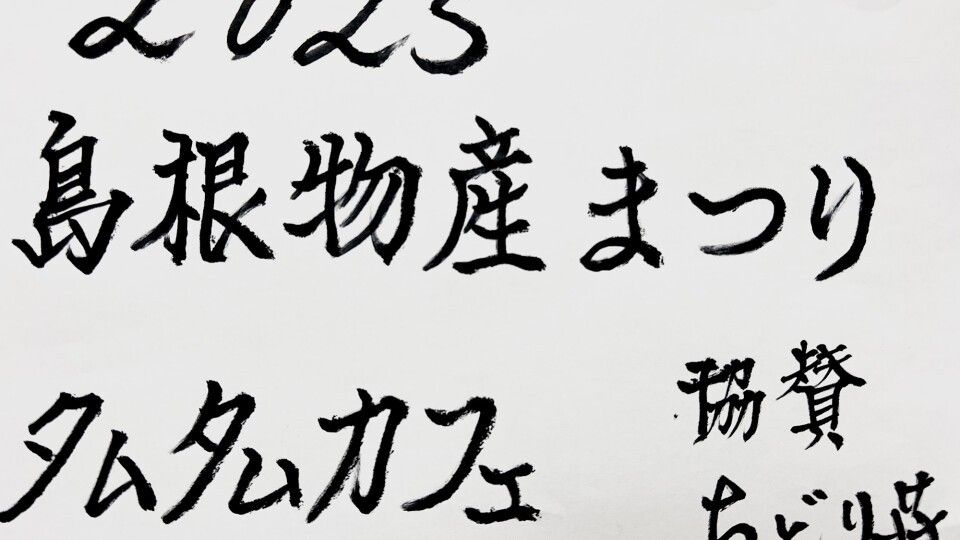 2025
島根物産まつり
タムタムカフェ
協賛
ちどり